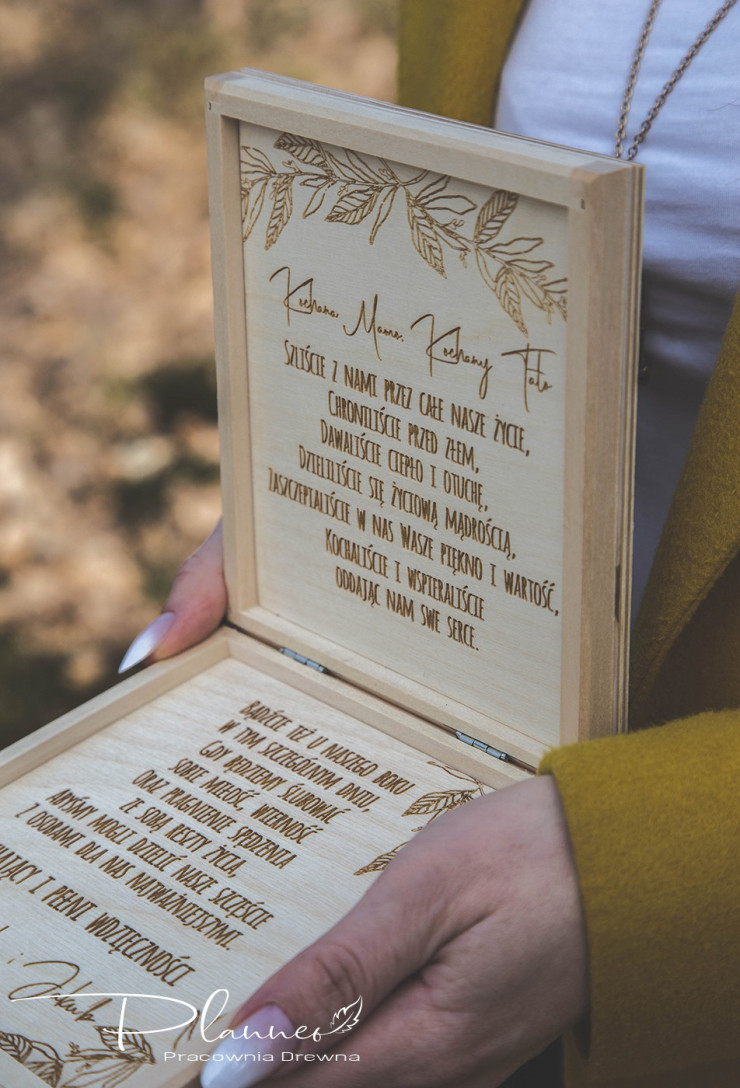 Kochana Mamo, Kochany Tato
SZLIŚCIE Z NAMI PRZEZ CAŁE NASZE ŻYCIE,
CHRONILIŚCIE PRZED ZŁEM,
DAWALIŚCIE CIEPŁO I OTUCHĘ,
DZIELILIŚCIE SIĘ ŻYCIOWĄ MĄDROŚCIĄ,
ZASZCZEPIALIŚCIE W NAS WASZE PIĘKNO I WARTOŚĆ,
KOCHALIŚCIE I WSPIERALIŚCIE
ODDAJĄC NAM SWE SERCE.
BĄDŹCIE TEŻ U NASZEGO BOKU
W TYM SZCZEGÓLNYM DNIU,
GDY BĘDZIEMY ŚLUBOWAĆ
SOBIE MIŁOŚĆ, WIERNOŚĆ
ORAZ PRAGNIENIE SPĘDZENIA
ZE SOBĄ RESZTY ŻYCIA,
ABYŚMY MOGLI DZIELIĆ NASZE SZCZĘŚCIE
Z OSOBAMI DLA NAS NAJWAŻNIEJSZYMI.
I PEŁNI WDZIĘCZNOŚCI
i Jakub
Planner
Pracownia Drewna